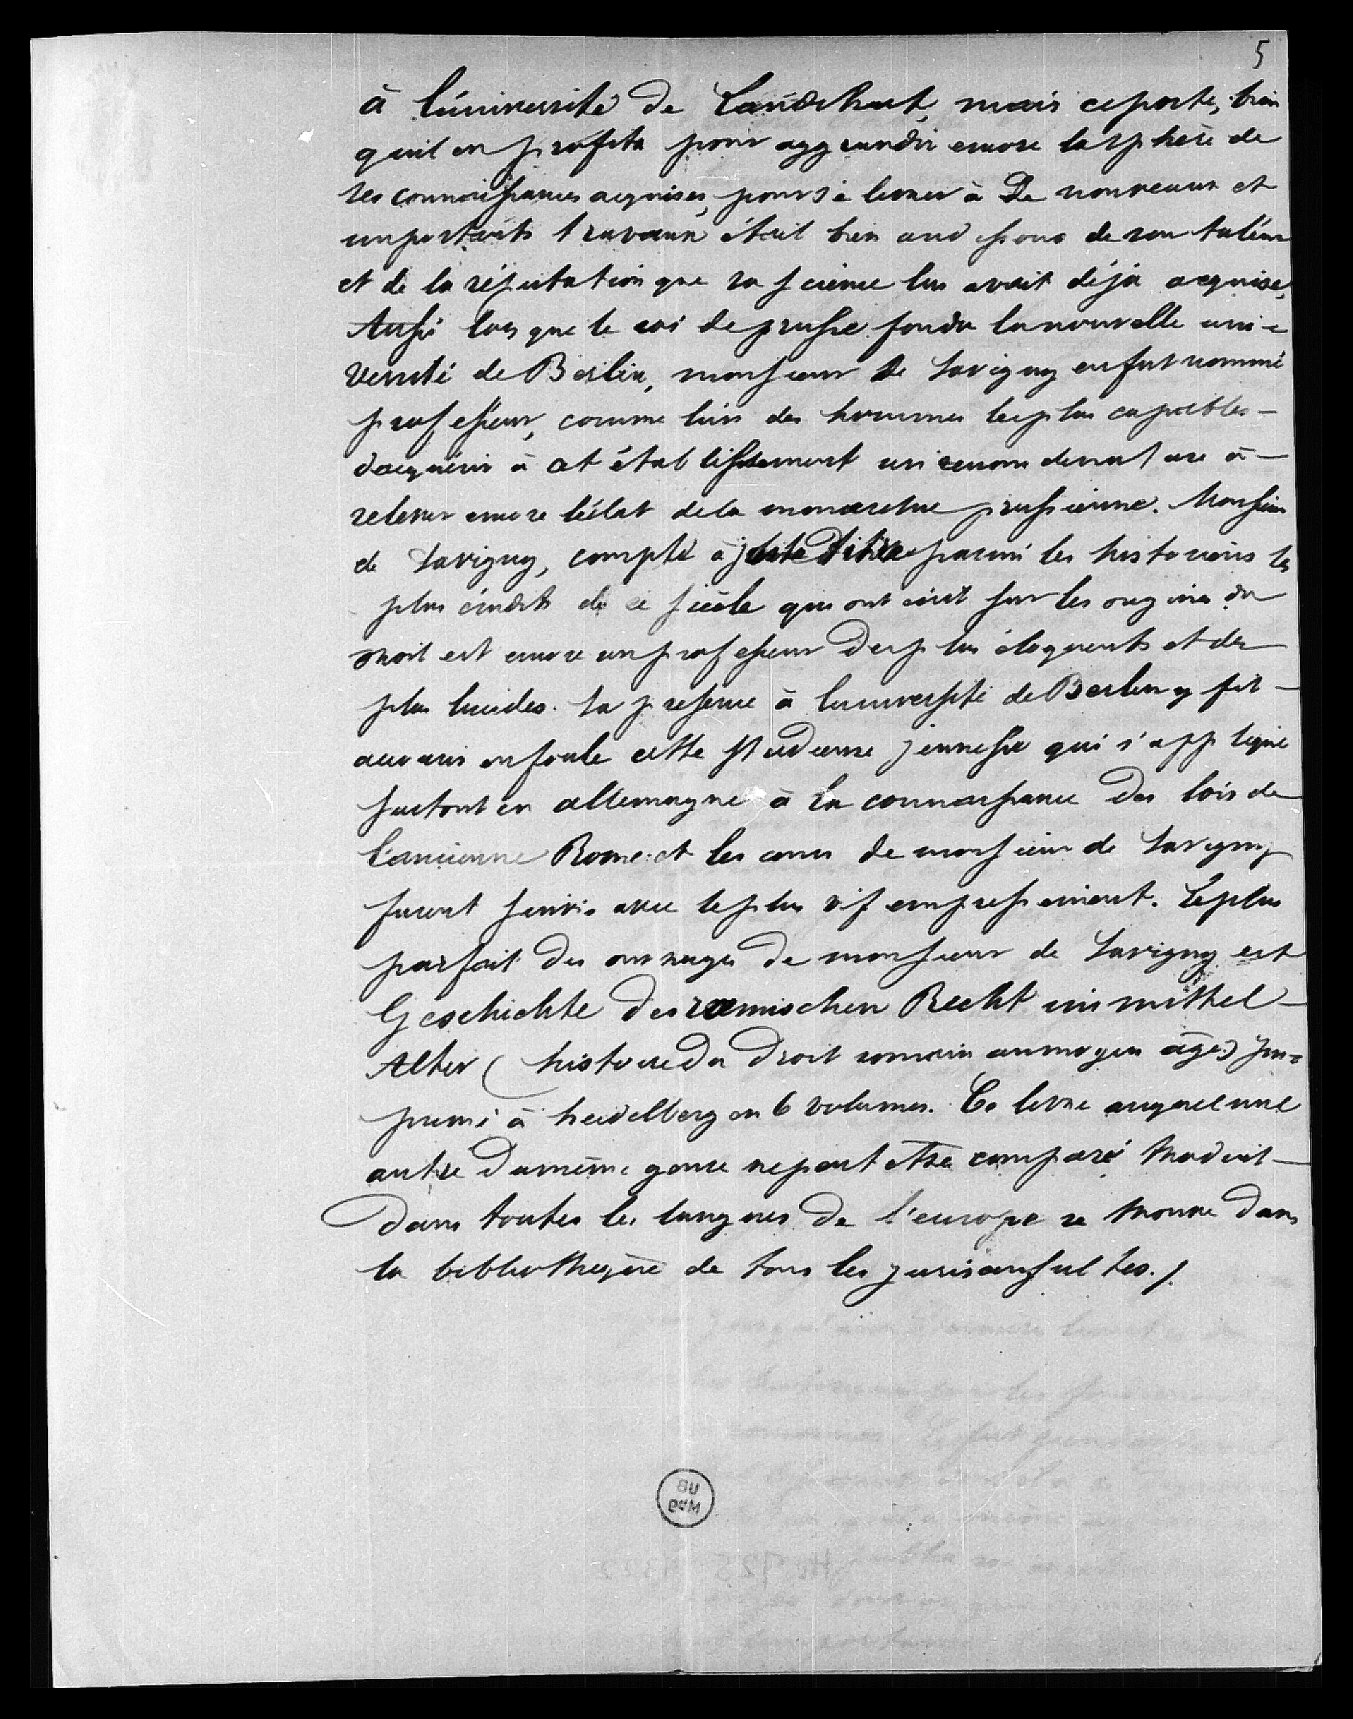 5
à l'université de Landshut, mais ce poste, bien
qu'il en profita pour aggrandir encore la sphère de
ses connoissances acquises, pour se livrer à de nouveaux et
importants travaux était bien au dessous de son talent
et de la réputation que sa science lui avait déjà acquise,
Aussi lorsque le roi de prusse fonda la nouvelle uni=
versité de Berlin, monsieur de Savigny en fut nommé
professeur, comme l'un des hommes les plus capables
d'acquérir à cet établissement un renom de nature à
relever encore l'éclat de la monarchie prussienne. Monsieur
de Savigny, compté à juste titre parmi les historiens les
plus érudits de ce siècle qui ont écrit sur les origines du
droit est encore un professeur des plus éloquents et des
plus lucides. Sa présence à l'université de Berlin y fit
accourir en foule cette studieuse jeunesse qui s'applique
surtout en allemagne à la connaissance des lois de
l'ancienne Rome et les cours de monsieur de Savigny
furent suivis avec le plus vif empressement. Le plus
parfait des ouvrages de monsieur de Savigny est
Geschichte des rœmischen Recht im mittel-
Alter (histoire du droit romain au moyen âge) Im=
primé à heidelberg en 6 volumes. Ce livre auquel nul
autre du même genre ne peut être comparé traduit
dans toutes les langues de l'europe se trouve dans
la bibliothèque de tous les jurisconsultes./.
BU